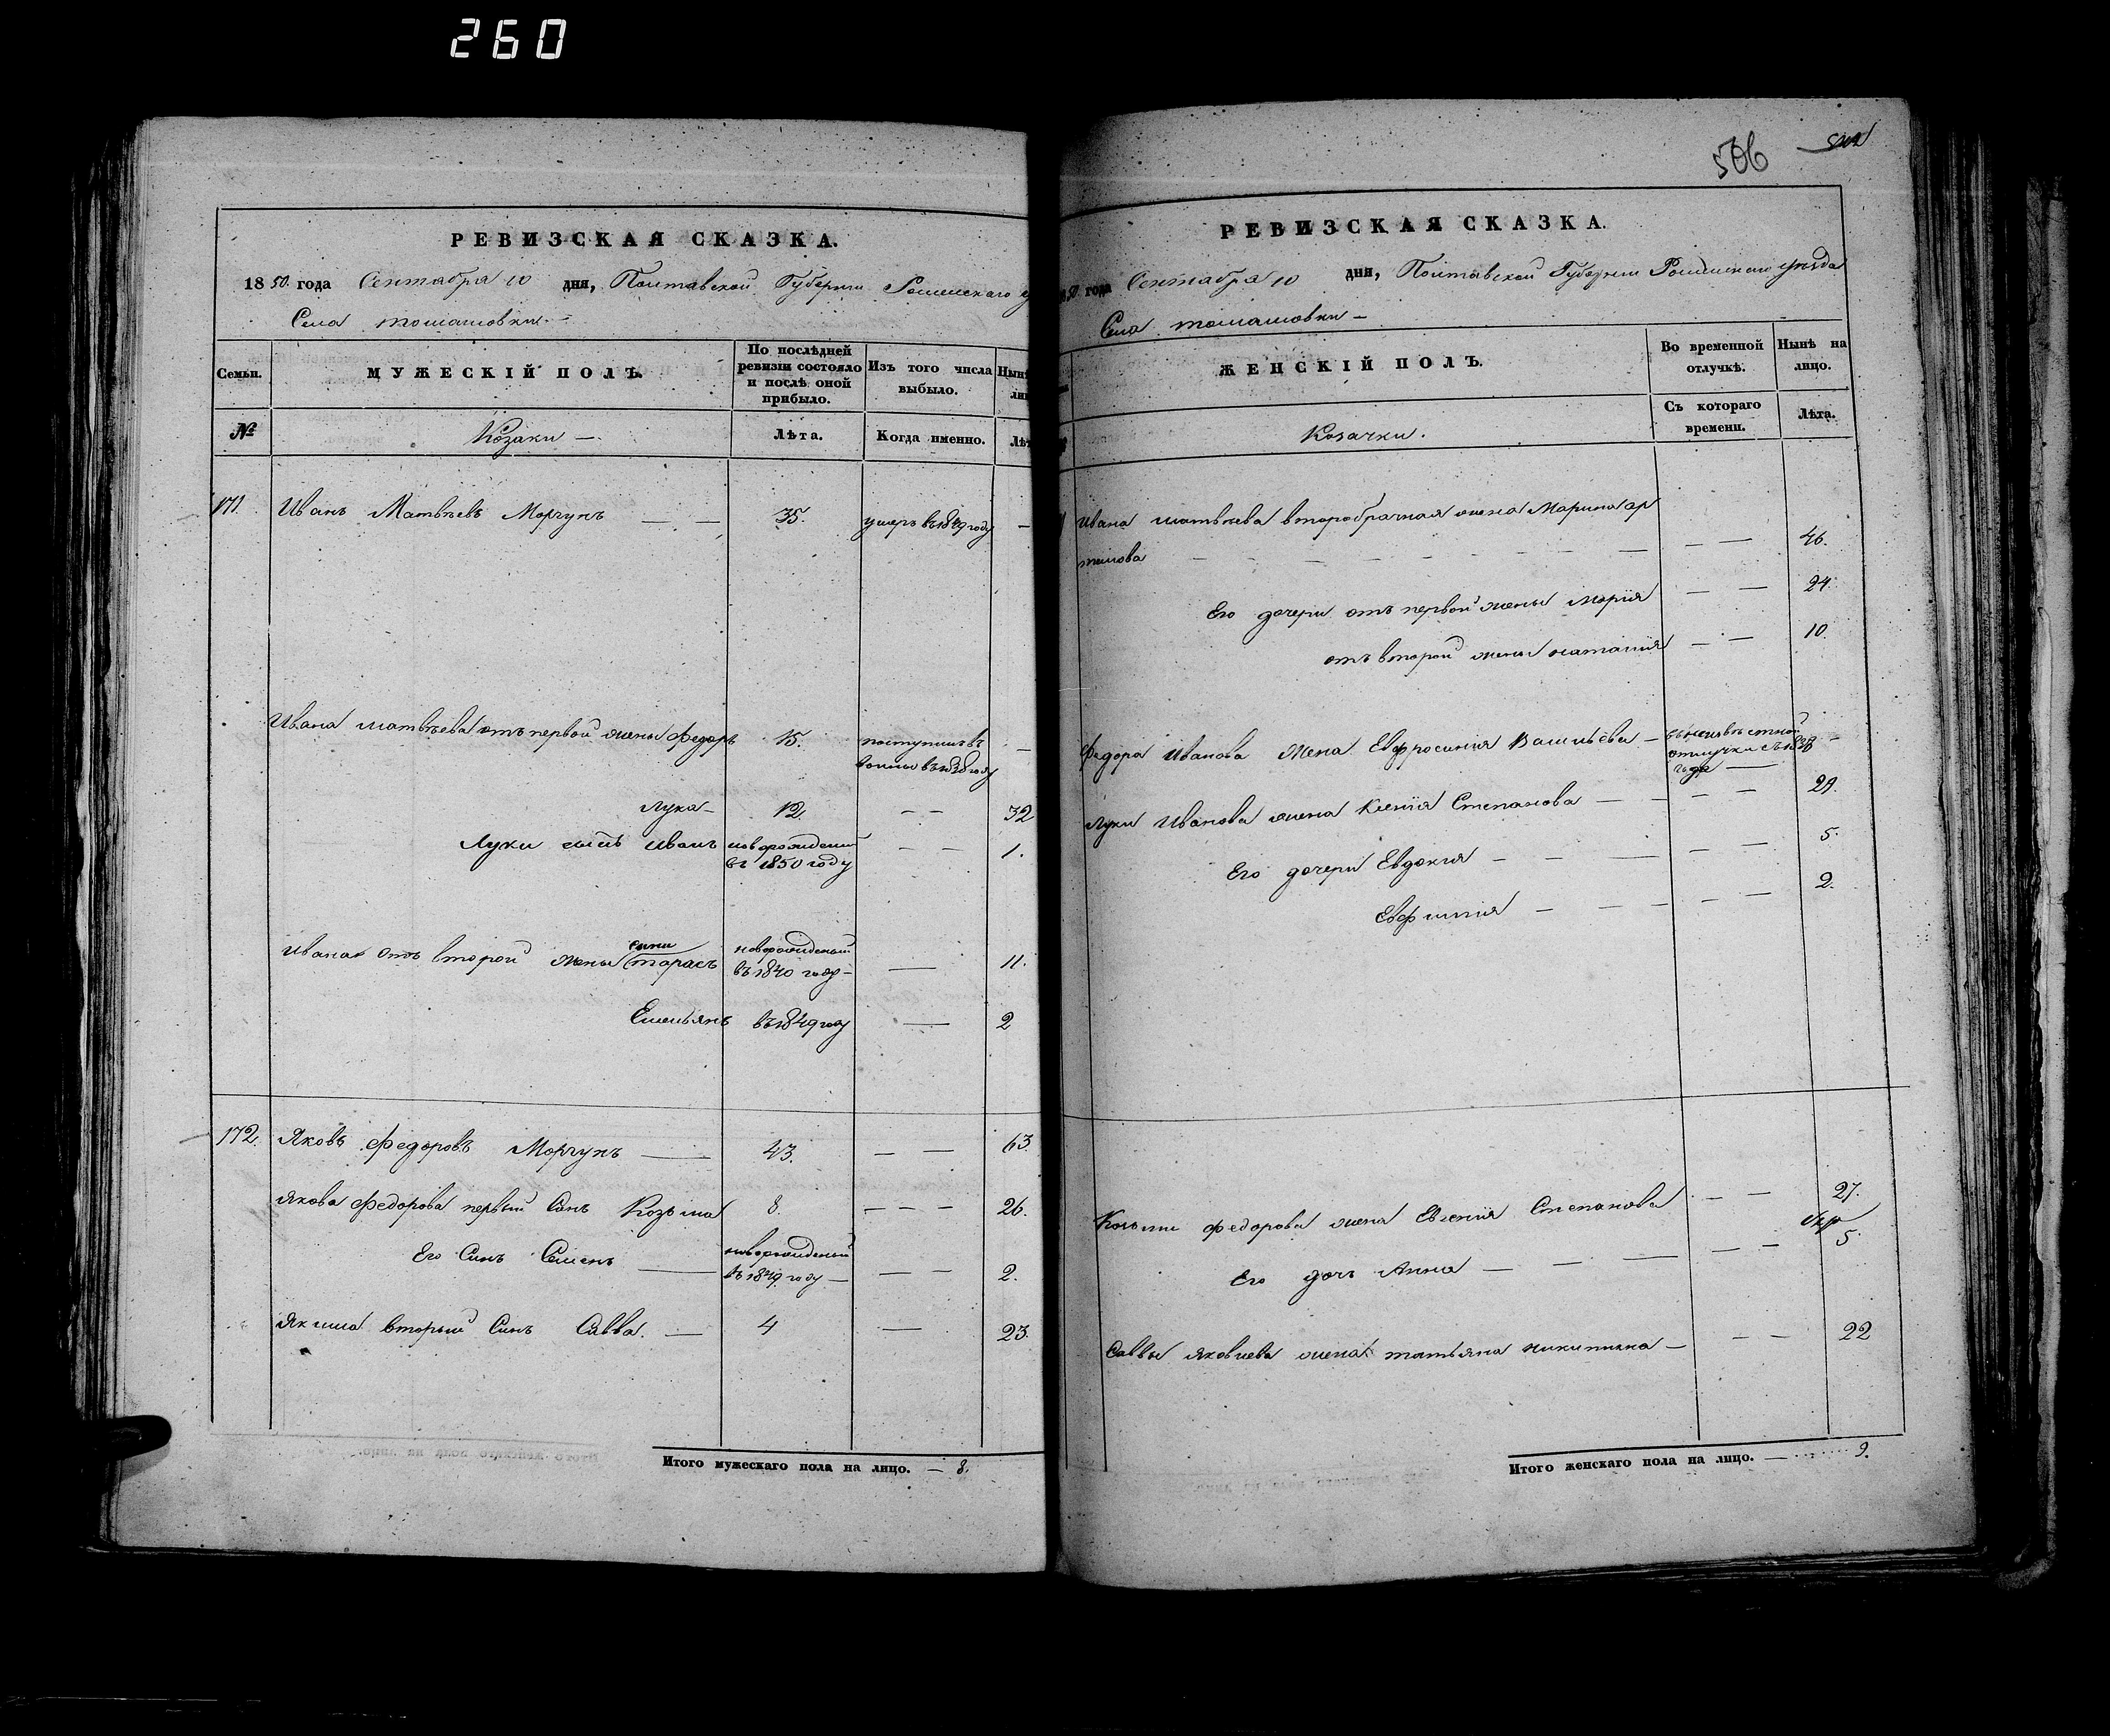 260
РЕВИЗСКАЯ СКАЗКА.
1850. года Сентября 10 дня, Полтавской Губерніи Роменскаго у
Села томашовки. —
Семьи. МУЖЕСКІЙ ПОЛЪ. По послѣдней ревизіи состояло и послѣ оной прибыло. Изъ того числа выбыло. Нынѣ ли
№ Козаки — Лѣта. Когда именно. Лѣт
171. Иванъ Матвѣевъ Моргунъ — — 35. умеръ въ 1849 году —
Ивана матвѣева отъ первой жены Федоръ 15. поступилъ въ —
въ 1838 году
Лука — 12. — — 32
Луки сынъ иванъ новорожденный — — 1.
въ 1850 году
сини
Ивана отъ второй жены тарасъ новорожденый
въ 1840 году — — 11.
Емельянъ въ 1849 году — 2
172. Яковъ Федоровъ Моргунъ — 43. — — 63.
Якова Федорова первый Синъ Козьма 8. — — — 26.
Его Синъ Семенъ — новорожденый
въ 1849 году — — — 2.
Якима вторый Синъ Савва. — 4 — 23.
Итого мужескаго пола на лицо. — 8.
506
РЕВИЗСКАЯ СКАЗКА.
50 года Сентября 10 дня, Полтавской Губерніи Роменскаго уѣзда
Села томашовки —
ЖЕНСКІЙ ПОЛЪ. Во временной отлучкѣ. Нынѣ на лицо.
Козачки. Съ котораго времени. Лѣта.
Ивана матвѣева второбрачная жена Марина ар
темова — — — — — — — — — 46.
Его дочери отъ первой жены марія — — 24.
отъ второй жены наталия — — 10.
Федора Иванова жена Евфросинія Васильева — въ неизвѣстной —
отлучки съ 1838
года —
Луки Иванова жена Ксенія Степанова — — — — 29.
Его дочери Евдокия — — — — — 5.
Евфимия — — — — — 2.
Козьми федорова жена Евгенія Степанова — — 27.
Его доч Анна — — — — — 5.
Саввы яковлева жена татьяна никитина — — — 22
Итого женскаго пола на лицо. — 9.